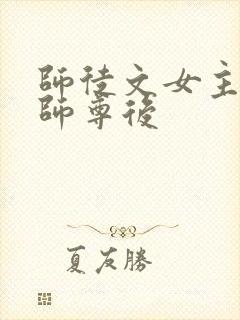 師徒文女主
師尊後
夏友勝